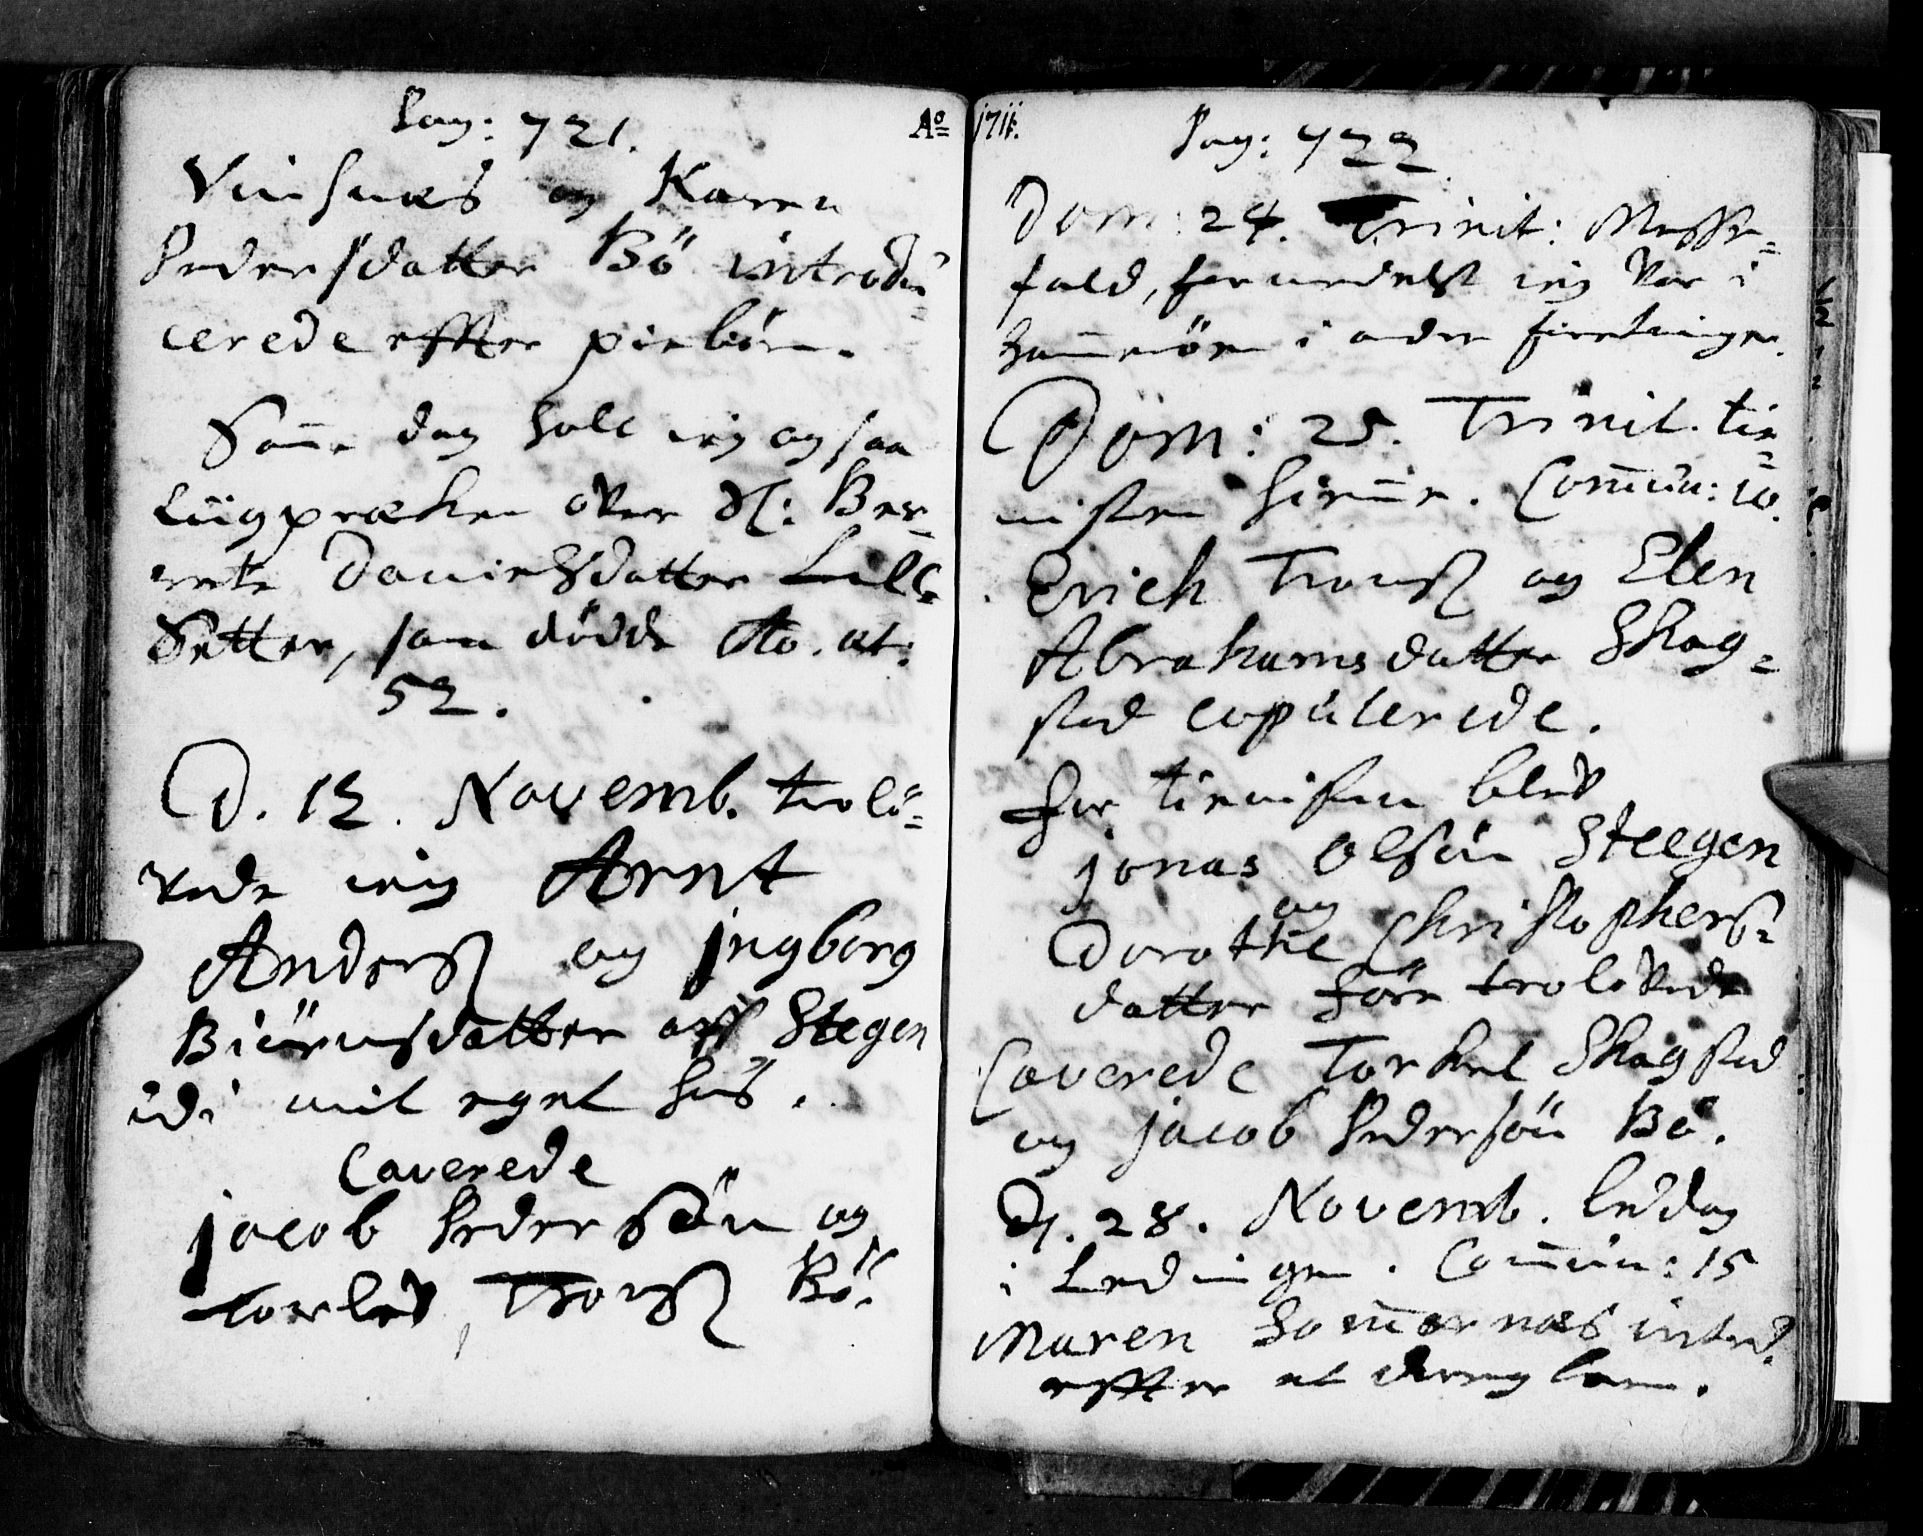 Pag: 721.
Vinsnæs og Karen
Pedersdatter Bö introdu=
cerede effter piebörn.
Same dag holt ieg og saa
Liigpræken over Sl: Ber=
rete Danielsdatter Lill=
Setter, som dödde Ao. æt:
52.
D. 12. Novemb. trolö=
vede ieg Arnt
Anderß og jngborg
Biörnsdatter aff Stegen
udi mit eget hus.
Caverede
jacob Pedersön og
Torlev Tronß Bö.
Ao 1711.
Pag: 722
Dom: 24. Trinit: Messe=
fald, formedelst ieg var i
Hameröen i andre forretninger.
Dom: 25. Trinit. tie=
nisten hieme. Comun: 10.
Erich Tronß og Elen
Abrahamsdatter Skag=
stad copulerede.
for tienisten blev
jonas Olsön Steegen
og
Dorothe Christopherß=
datter före trolovede
Caverede Torkel Skagstad
og jacob Pedersön Bö.
D. 28. Novemb. bededag
i Lödingen. Comun: 15
Maren Hamernæs introd.
effter et drengbarn.